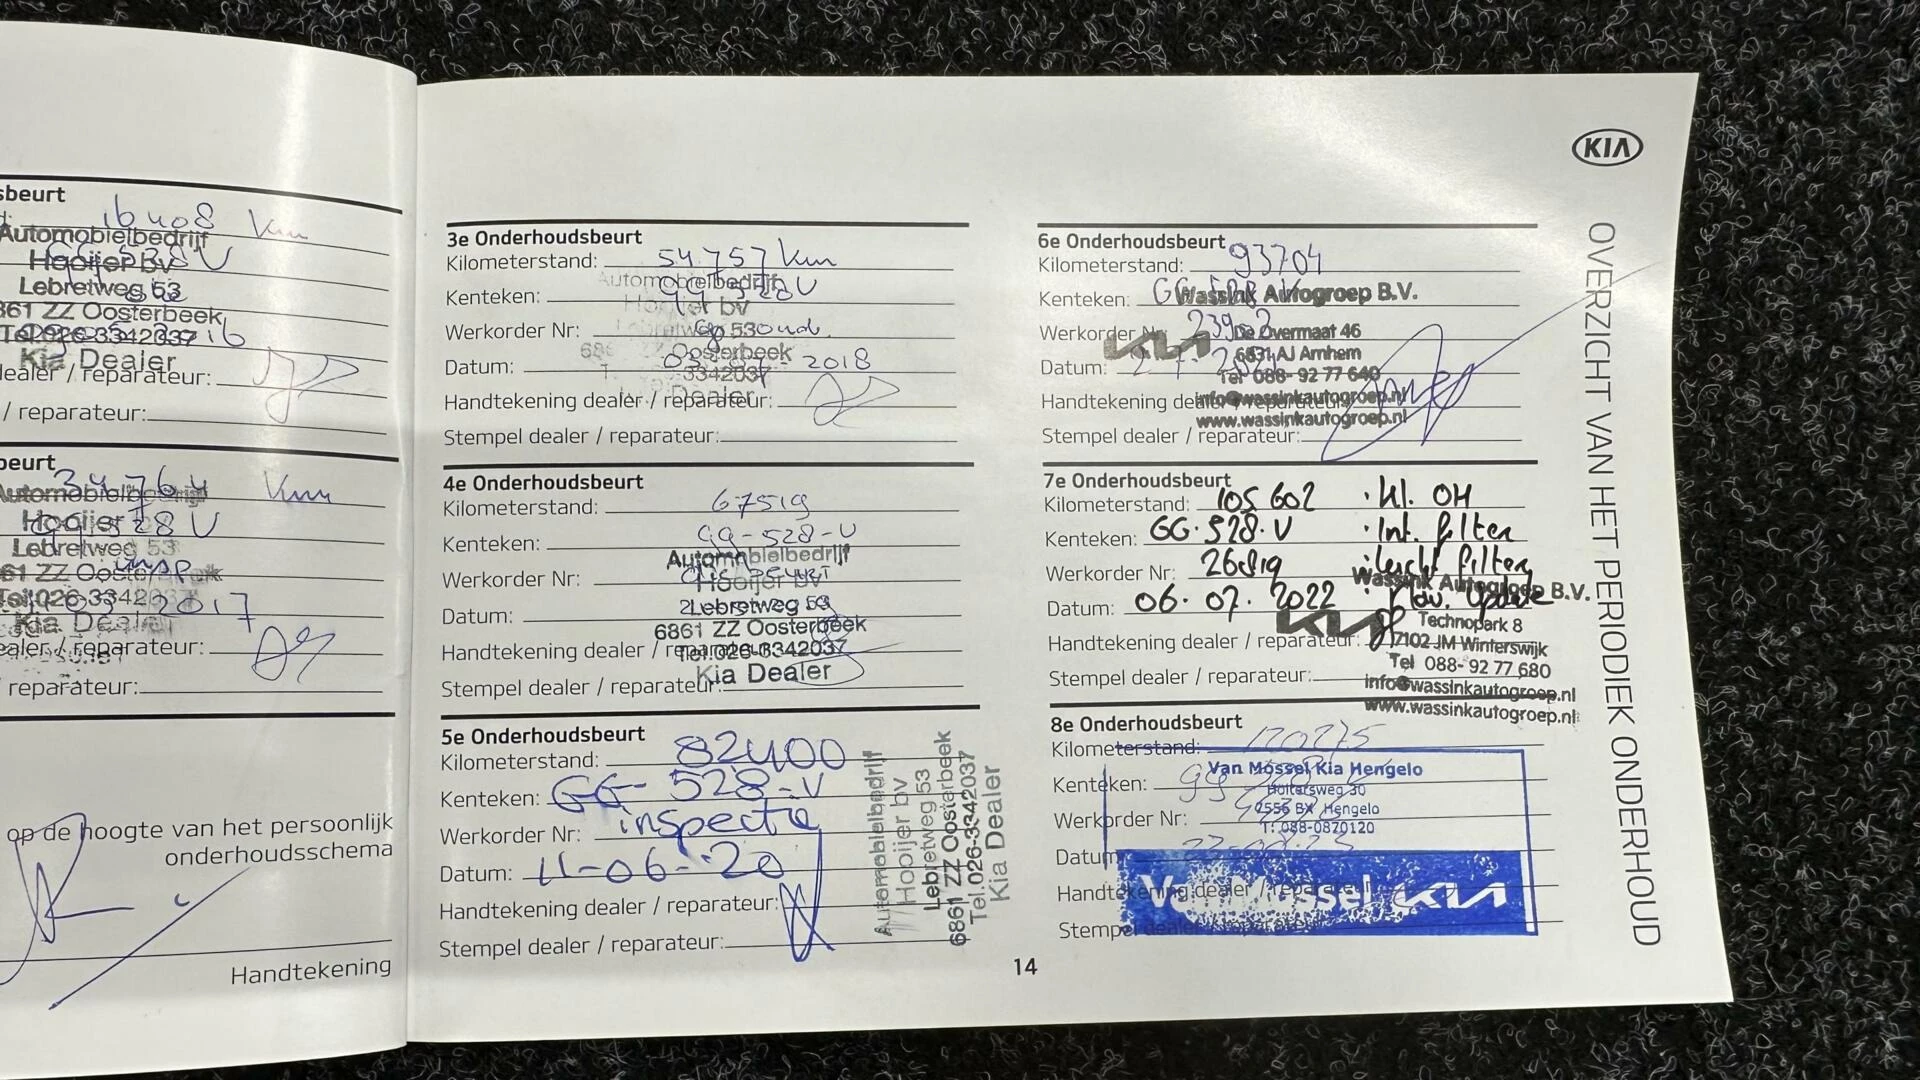 sbeurt
16408 Km
Automobielbedrijf
Hooijer bv
Lebretweg 53
6861 ZZ Oosterbeek
Tel.026-3342037
Kia Dealer
dealer / reparateur:
/ reparateur:
beurt
34764 Km
Automobielbedrijf
Hooijer
Lebretweg 53
insp
2017
Kia Dealer
ealer / reparateur:
/ reparateur:
op de hoogte van het persoonlijk
onderhoudsschema
Handtekening
3e Onderhoudsbeurt
Kilometerstand: 54.757 km
Automobielbedrijf
Kenteken: GG 528 V
Werkorder Nr:
Oosterbeek
Datum: 2018
Handtekening dealer / reparateur:
Stempel dealer / reparateur:
4e Onderhoudsbeurt
Kilometerstand: 67519
Kenteken: GG-528-V
Automobielbedrijf
Hooijer bv
Werkorder Nr:
Lebretweg 53
Datum:
6861 ZZ Oosterbeek
Handtekening dealer / reparateur:
Tel.026-3342037
Kia Dealer
Stempel dealer / reparateur:
5e Onderhoudsbeurt
Kilometerstand: 82400
Kenteken: GG-528-V
Werkorder Nr: inspectie
Datum: 11-06-20
Handtekening dealer / reparateur:
Stempel dealer / reparateur:
Automobielbedrijf
Hooijer bv
Lebretweg 53
6861 ZZ Oosterbeek
Tel.026-3342037
Kia Dealer
6e Onderhoudsbeurt
Kilometerstand: 93704
Kenteken:
Wassink Autogroep B.V.
Werkorder Nr:
De Overmaat 46
KIA
6831 AJ Arnhem
Datum:
Tel 088- 92 77 640
Handtekening dealer / reparateur:
info@wassinkautogroep.nl
www.wassinkautogroep.nl
Stempel dealer / reparateur:
7e Onderhoudsbeurt
Kilometerstand: 105 602 · kl. OH
Kenteken: GG·528·V · Int. filter
Werkorder Nr: 26819 · lucht filter
Datum: 06·07·2022 · update
Wassink Autogroep B.V.
KIA
Technopark 8
Handtekening dealer / reparateur:
7102 JM Winterswijk
Tel 088- 92 77 680
Stempel dealer / reparateur:
info@wassinkautogroep.nl
www.wassinkautogroep.nl
8e Onderhoudsbeurt
Kilometerstand: 120275
Van Mossel Kia Hengelo
Kenteken:
Werkorder Nr:
Hengelo
T: 088-0870120
Datum
Handtekening dealer / reparateur:
Van Mossel KIA
Stempel dealer / reparateur:
14
KIA
OVERZICHT VAN HET PERIODIEK ONDERHOUD